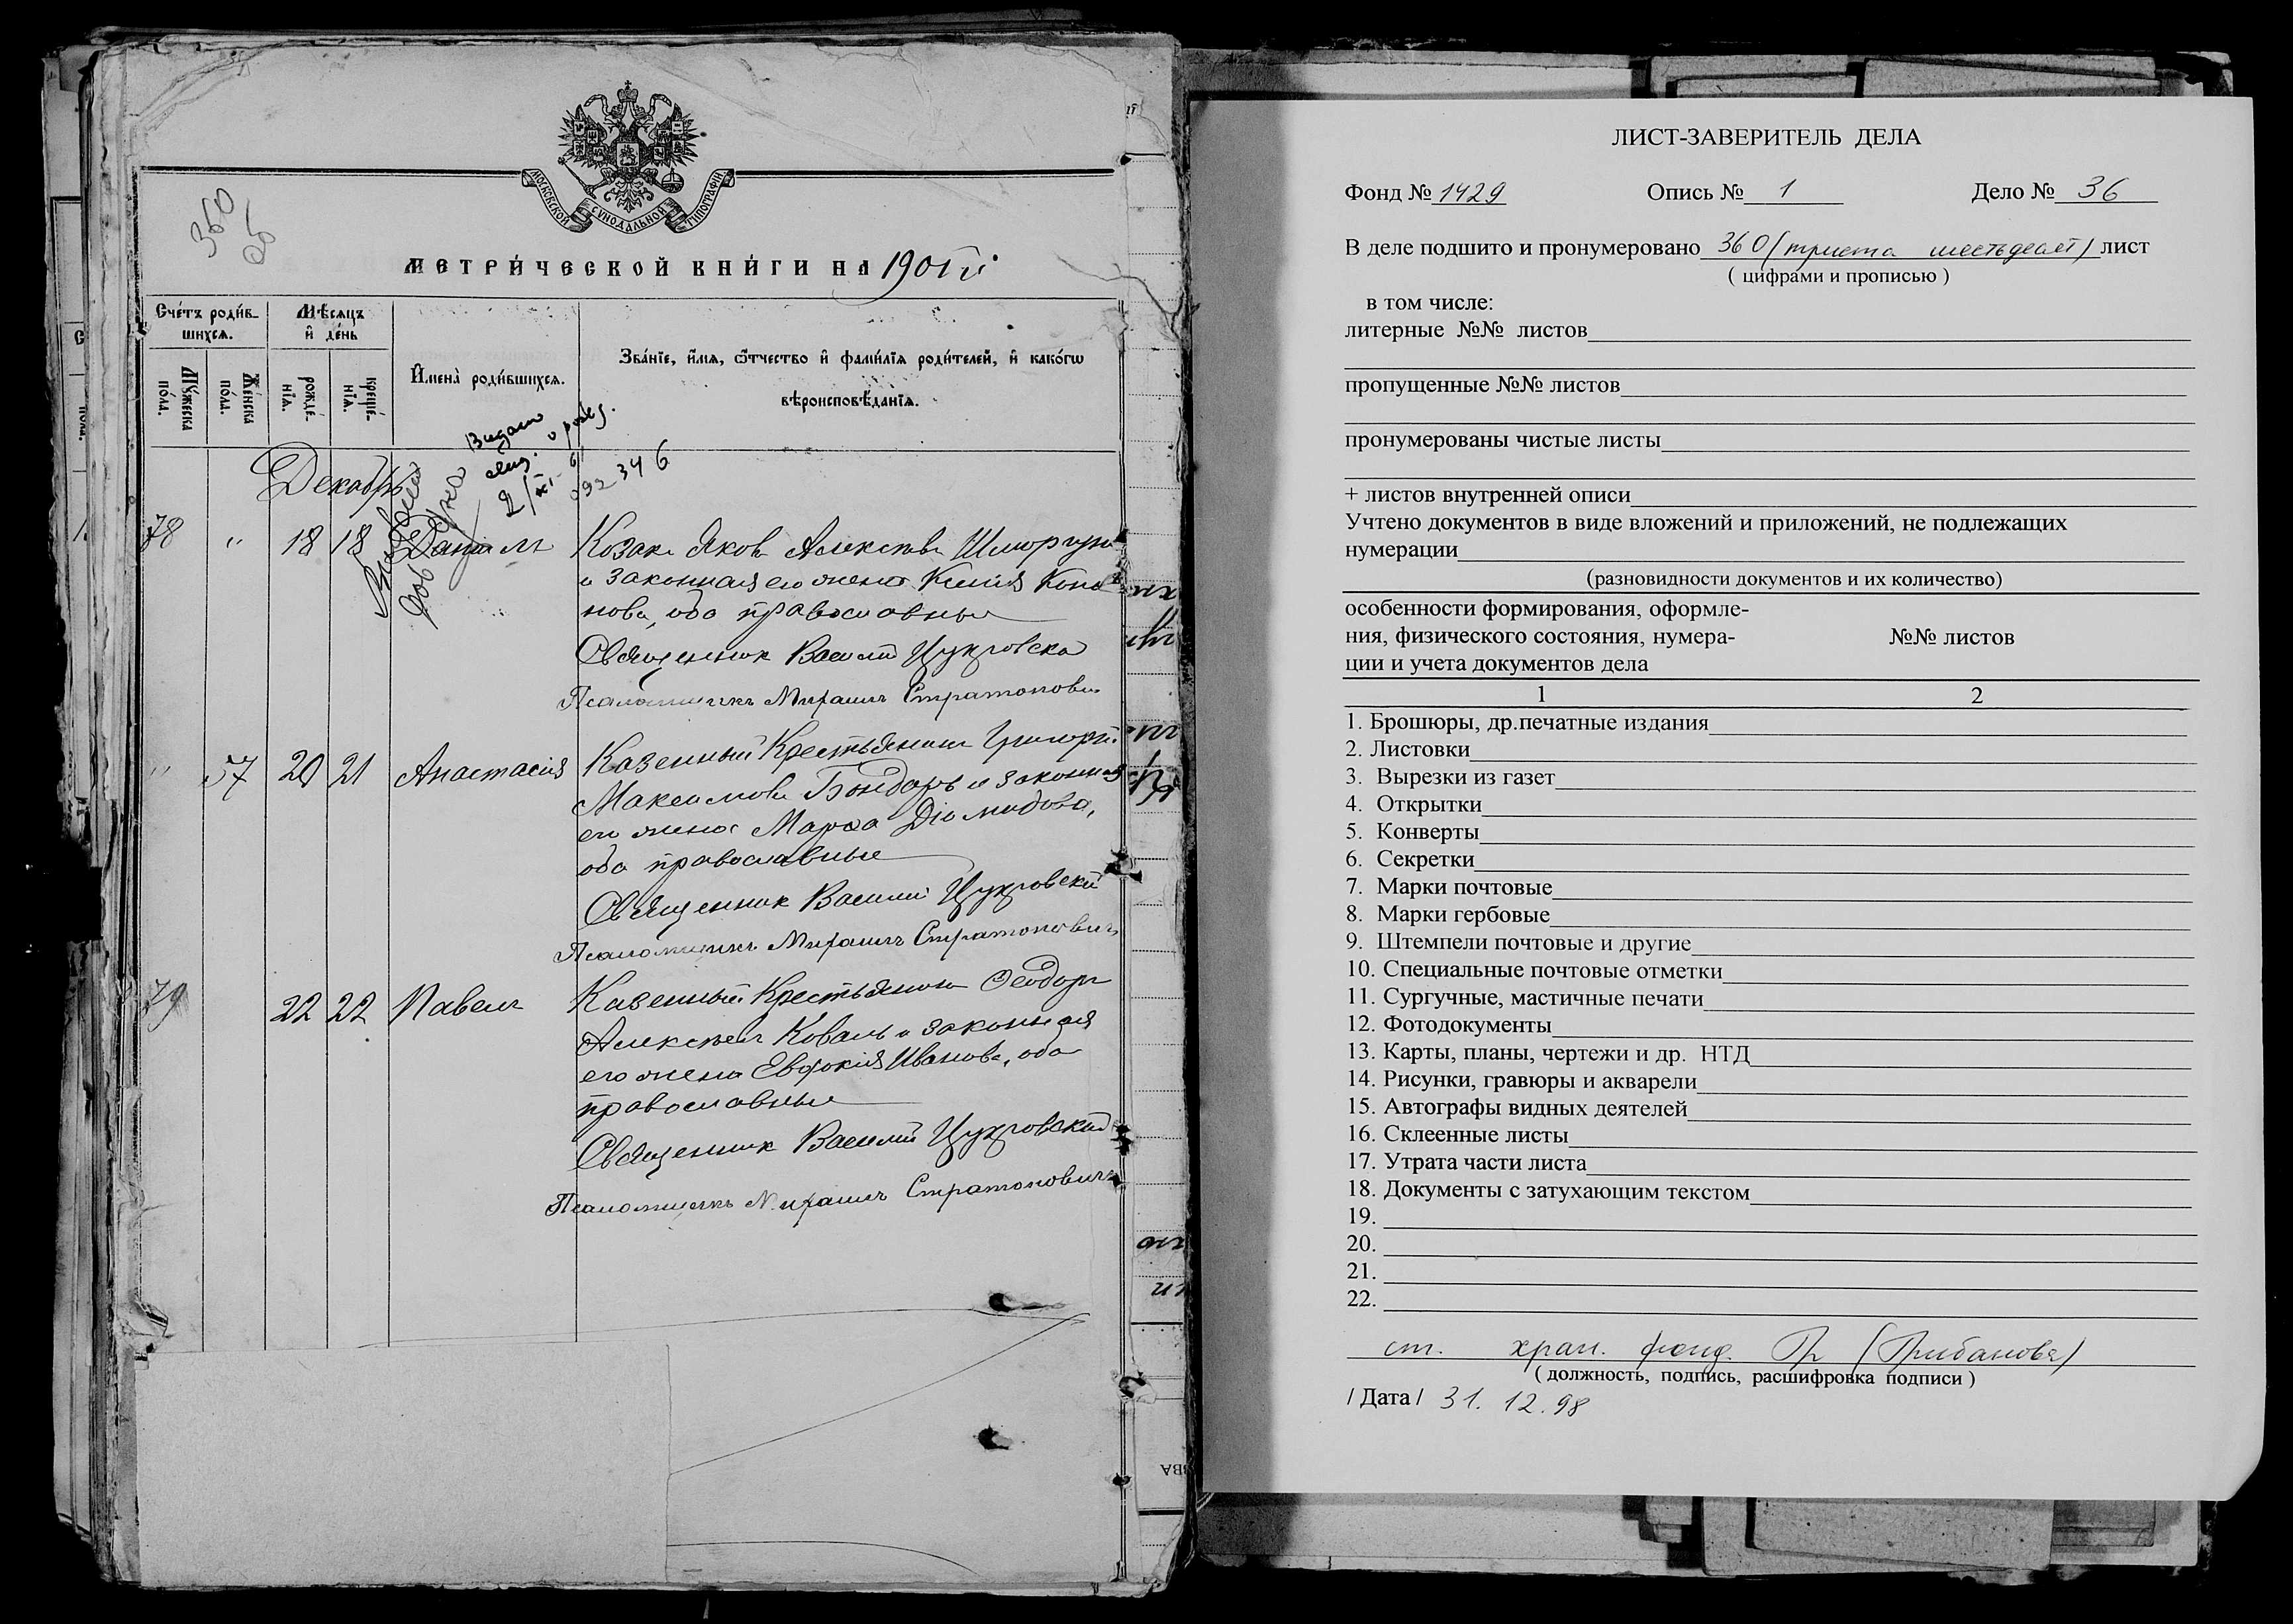 360
об
МОСКОВСКОЙ СѴНОДАЛЬНОЙ ТИПОГРАФІИ
МЕТРИ́ЧЕСКОЙ КНИ́ГИ НА 1901й
Сче́тъ роди́в-
шихсѧ.
Мѣ́сѧцъ
и҆ де́нь
Мꙋ́жеска
по́ла.
Же́нска
по́ла.
рожде́-
нїѧ.
креще́-
нїѧ.
И҆мена̀ роди́вшихсѧ.
Зва́нїе, и҆́мѧ, ѻ҆́тчество и҆ фами́лїѧ роди́телей, и҆ како́гѡ
вѣроисповѣ́данїѧ.
Видано
свид. о рожд.
2/XI-61
092346
Декабрь
78 " 18 18 Даниилъ
Козакъ Яковъ Алексѣевъ
и законная его жена Ксенія Коно
нова, оба православные
Священникъ Василій Цукровскій
Псаломщикъ Михаилъ Стратоновичъ
" 57 20 21 Анастасія
Казенный Крестьянинъ Григорій
Максимовъ Бондарь и законная
его жена Марѳа Діомидова,
оба православные
Священникъ Василій Цукровскій
Псаломщикъ Михаилъ Стратоновичъ
79 22 22 Павелъ
Казенный Крестьянинъ Ѳеодоръ
Алексѣевъ Коваль и законная
его жена Евдокія Иванова, оба
православные
Священникъ Василій Цукровскій
Псаломщикъ Михаилъ Стратоновичъ
ЛИСТ-ЗАВЕРИТЕЛЬ ДЕЛА
Фонд № 1429 Опись № 1 Дело № 36
В деле подшито и пронумеровано 360 (триста шестьдесят) лист
( цифрами и прописью )
в том числе:
литерные №№ листов
пропущенные №№ листов
пронумерованы чистые листы
+ листов внутренней описи
Учтено документов в виде вложений и приложений, не подлежащих
нумерации
(разновидности документов и их количество)
особенности формирования, оформле-
ния, физического состояния, нумера- №№ листов
ции и учета документов дела
1 2
1. Брошюры, др.печатные издания
2. Листовки
3. Вырезки из газет
4. Открытки
5. Конверты
6. Секретки
7. Марки почтовые
8. Марки гербовые
9. Штемпели почтовые и другие
10. Специальные почтовые отметки
11. Сургучные, мастичные печати
12. Фотодокументы
13. Карты, планы, чертежи и др. НТД
14. Рисунки, гравюры и акварели
15. Автографы видных деятелей
16. Склеенные листы
17. Утрата части листа
18. Документы с затухающим текстом
19.
20.
21.
22.
ст. хран. фонд. Гр (Грибанова)
( должность, подпись, расшифровка подписи )
/ Дата / 31. 12. 98